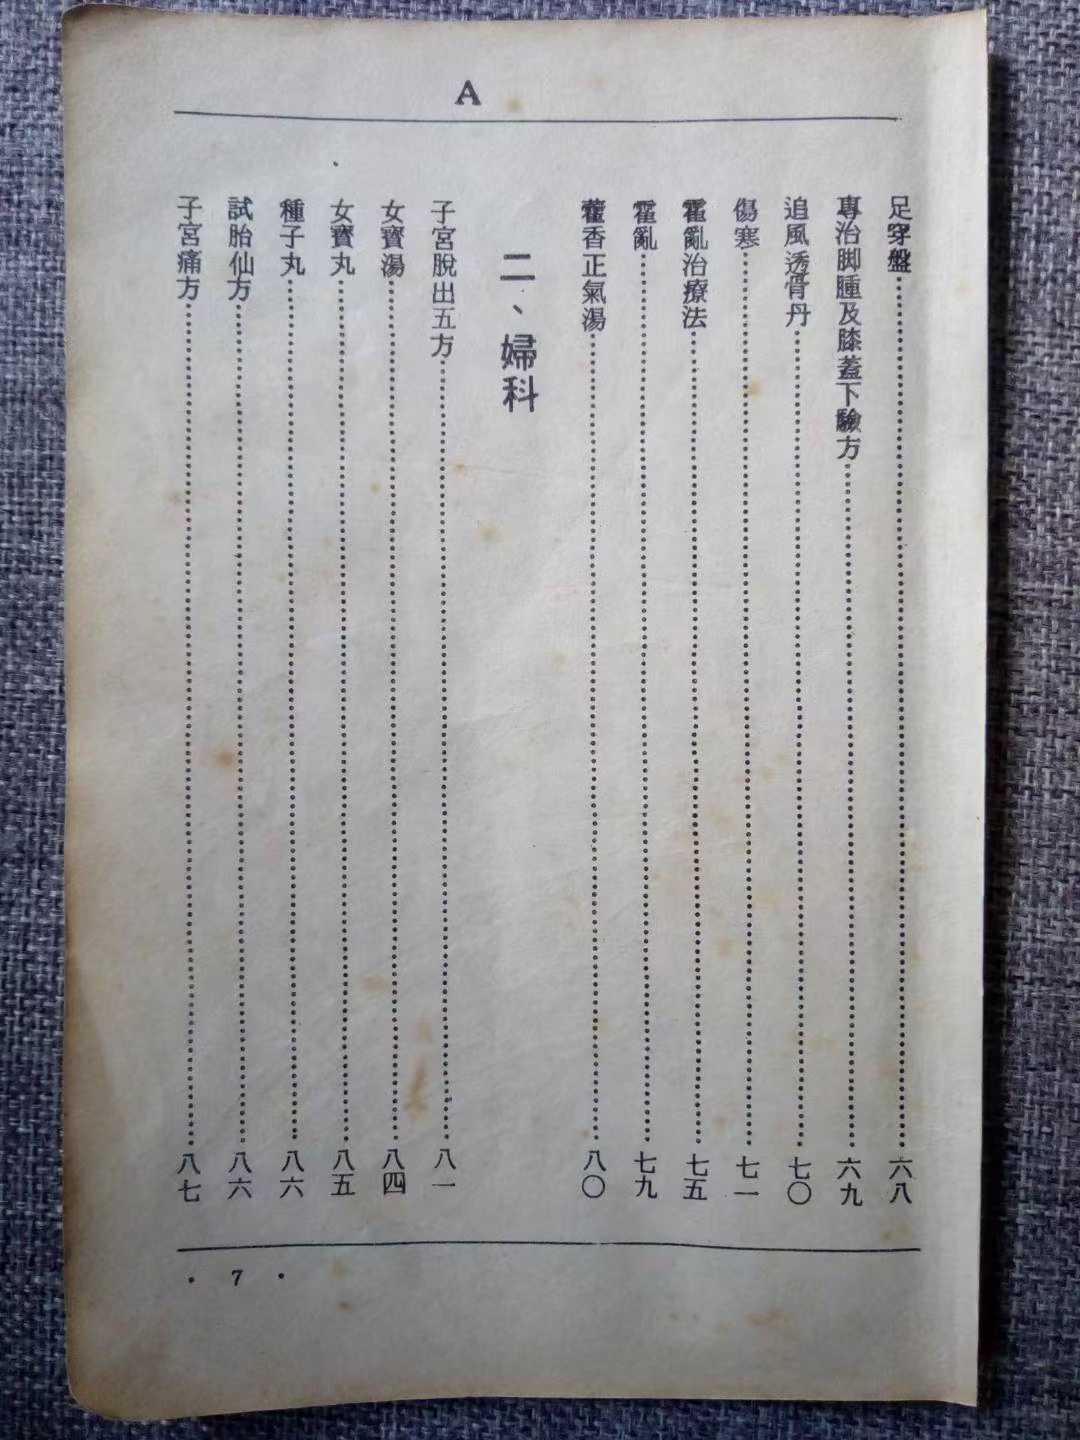 A
足穿盤……六八
專治脚腫及膝蓋下驗方……六九
追風透骨丹……七〇
傷寒……七一
霍亂治療法……七五
霍亂……七九
藿香正氣湯……八〇
二、婦科
子宮脫出五方……八一
女寶湯……八四
女寶丸……八五
種子丸……八六
試胎仙方……八六
子宮痛方……八七
· 7 ·